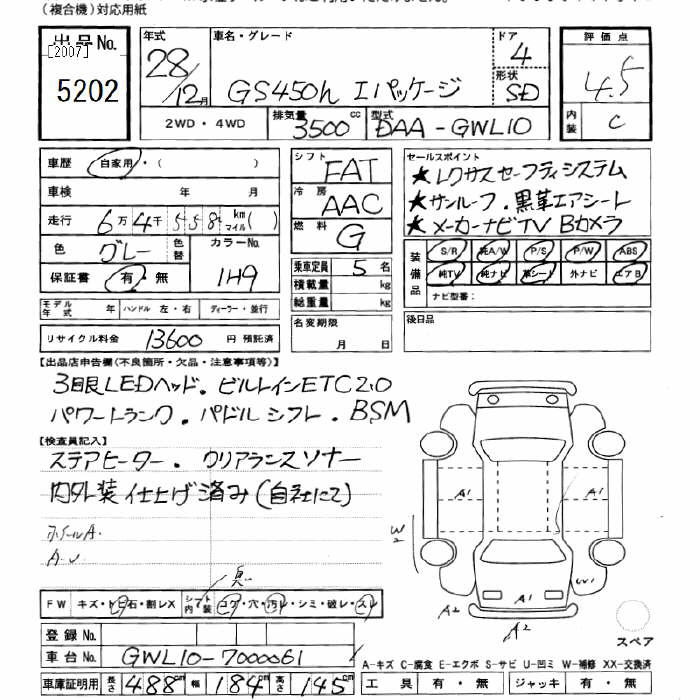 (複合機)対応用紙
出品No.
[2007]
5202
年式
28/12月
車名・グレード
GS450h Iパッケージ
ドア
4
形状
SD
評価点
4.5
内装
C
2WD・4WD
排気量
3500cc
型式
DAA-GWL10
車歴 自家用・( )
車検 年 月
走行 6万4千558km マイル( )
色 グレー
色替
カラーNo.
1H9
保証書 有・無
モデル年式 年 ハンドル 左・右 ディーラー・並行
リサイクル料金 13600 円 預託済
シフト FAT
冷房 AAC
燃料 G
乗車定員 5名
積載量 kg
総重量 kg
名変期限
月 日
セールスポイント
★レクサスセーフティシステム
★サンルーフ.黒革エアシート
★メーカーナビTV Bカメラ
装備品
S/R 純A/W P/S P/W ABS
純TV 純ナビ 革シート 外ナビ エアB
ナビ型番:
後日品
【出品店申告欄(不良箇所・欠品・注意事項等)】
3眼LEDヘッド.ビルトインETC2.0
パワートランク.パドルシフト.BSM
【検査員記入】
ステアヒーター.クリアランスソナー
内外装仕上げ済み(自社にて)
ホイールA.
FW キズ・トビ石・割レX
シート内装 コゲ・穴・汚レ・シミ・破レ・スレ
登録No.
車台No. GWL10-7000061
車庫証明用 長さ 488cm 幅 184cm 高さ 145cm
A1
A1
W2
A1
W1
A2
A2
スペア
A-キズ C-腐食 E-エクボ S-サビ U-凹ミ W-補修 XX-交換済
工具 有・無 ジャッキ 有・無